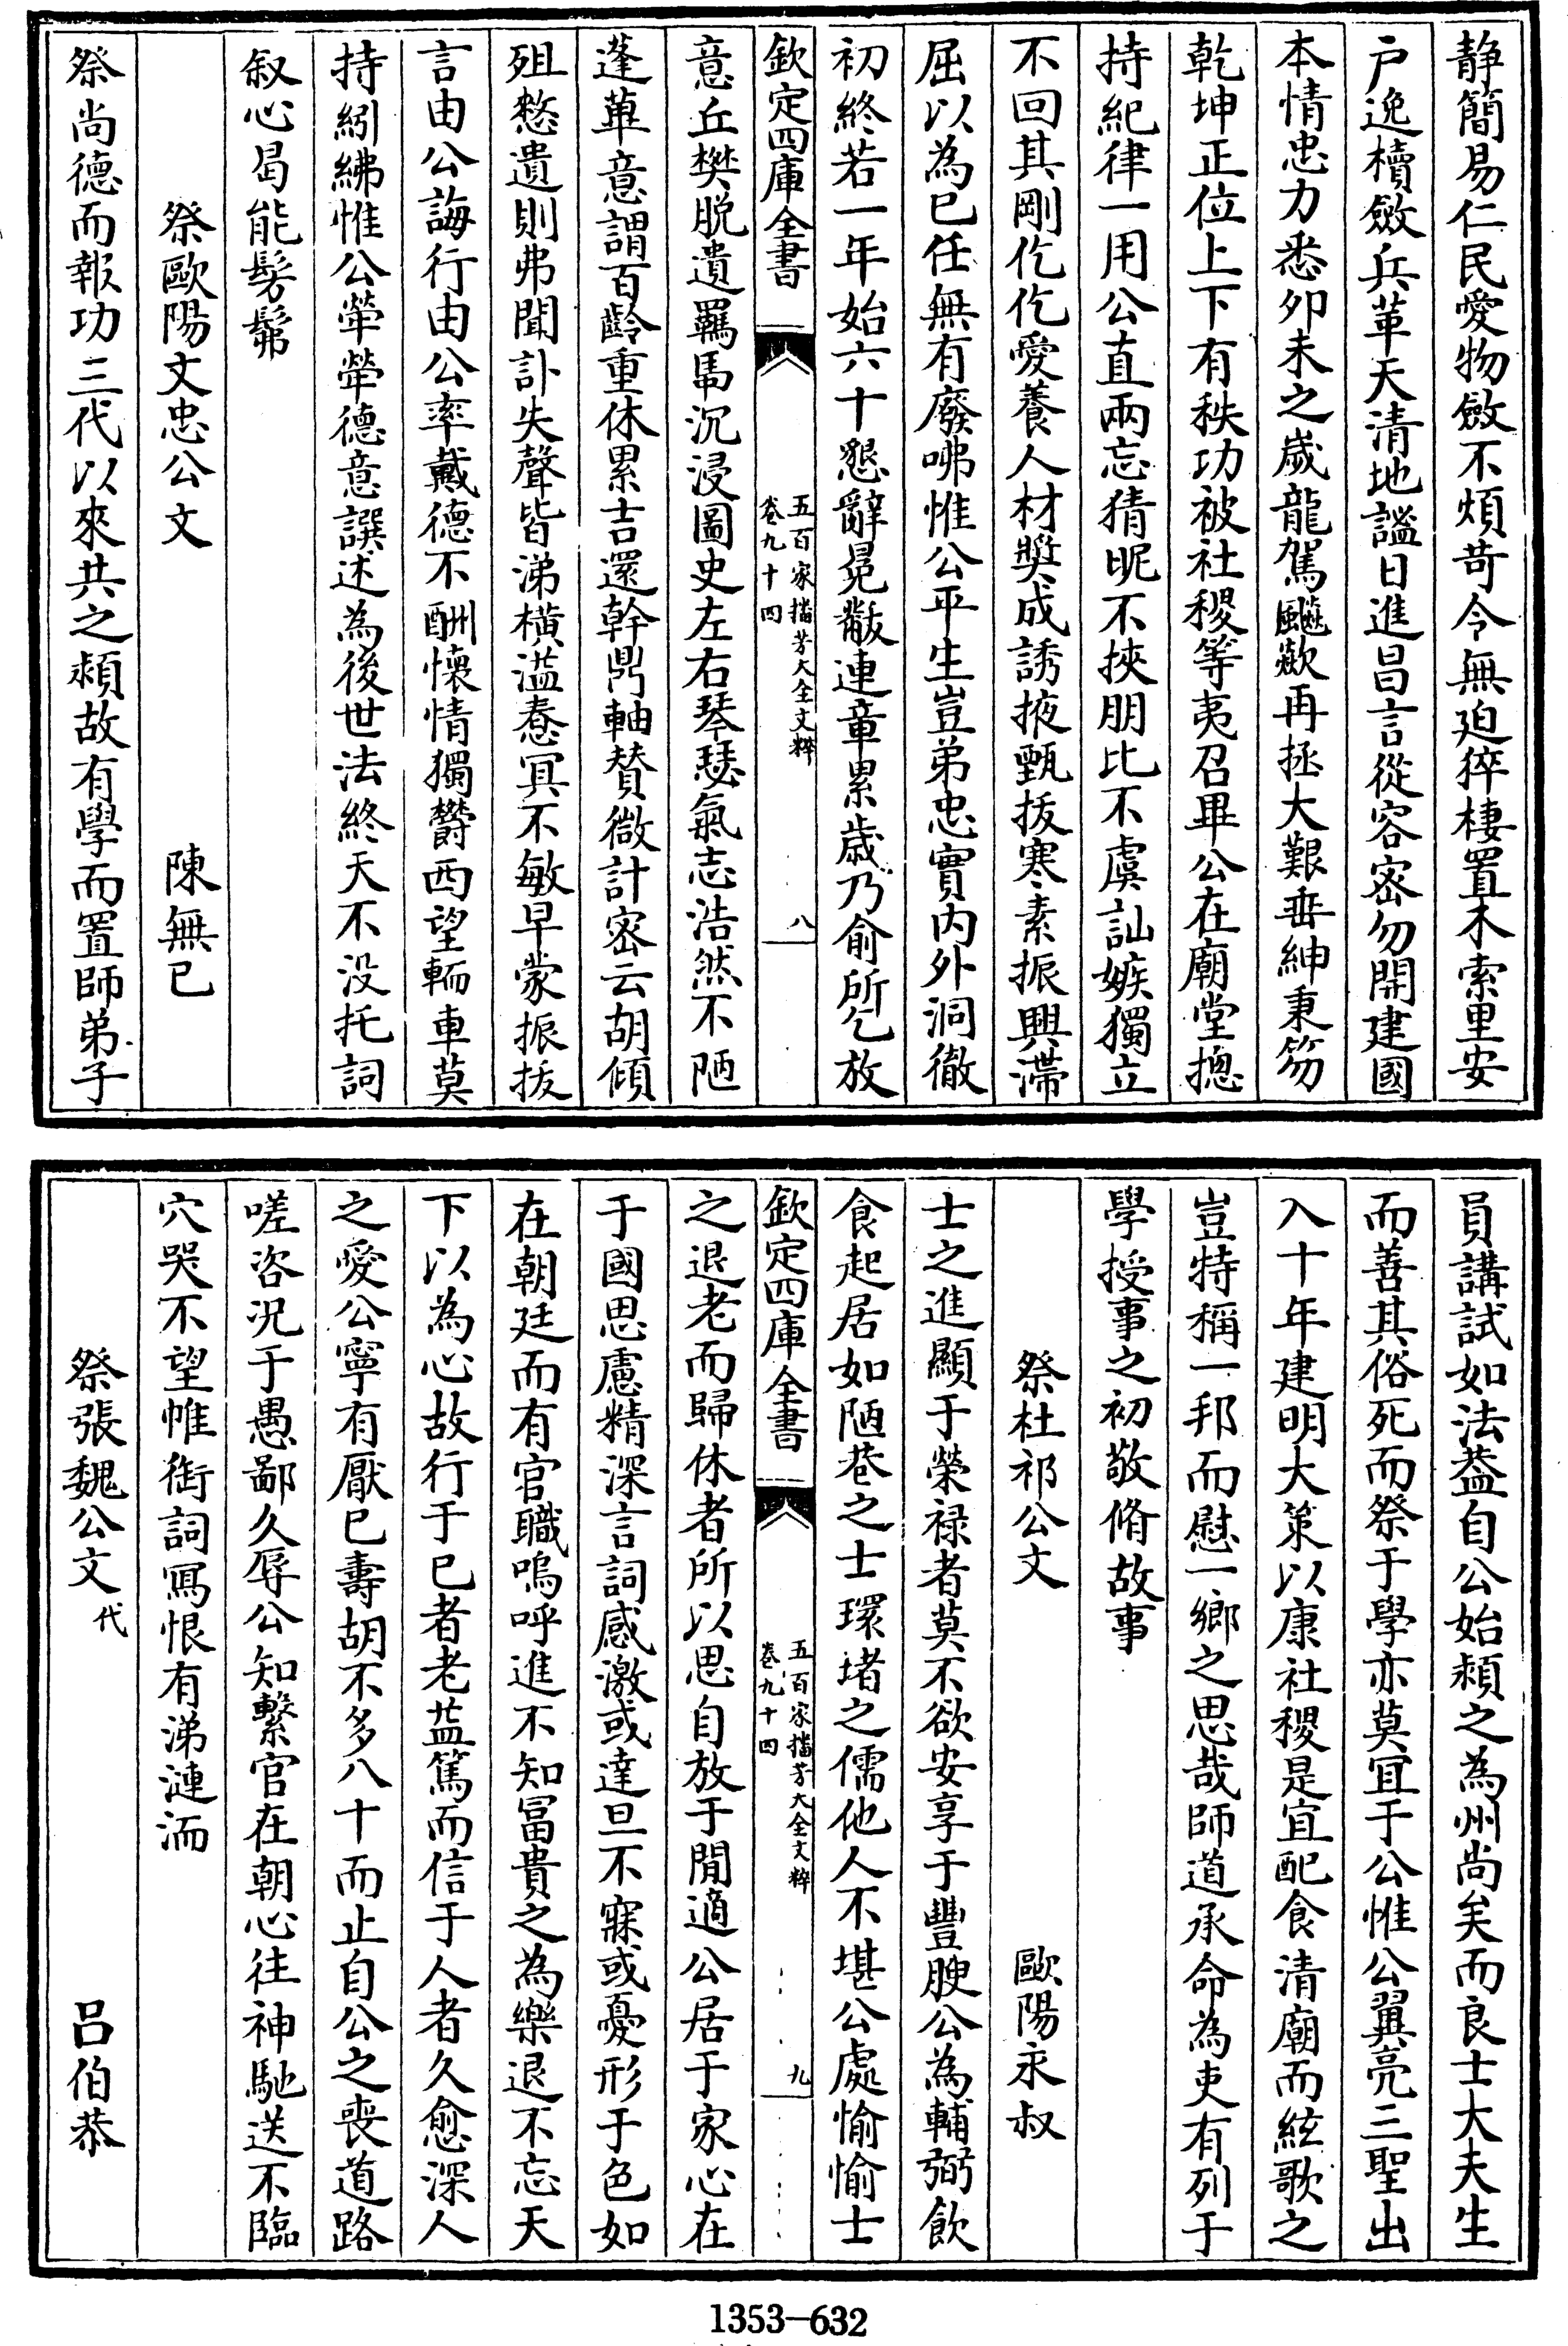 静簡易仁民愛物斂不煩苛令無迫猝棲置木索里安
户逸櫝斂兵革天清地謐日進昌言從容密勿開建國
本情忠力悉夘未之歲龍駕飈歘再拯大艱垂紳秉笏
乾坤正位上下有秩功被社稷等夷召畢公在廟堂摠
持紀律一用公直兩忘猜昵不挾朋比不虞訕嫉獨立
不回其剛仡仡愛養人材奬成誘掖甄拔寒素振興滯
屈以為已任無有廢咈惟公平生豈弟忠實内外洞徹
初終若一年始六十懇辭冕黻連章累歲乃俞所乞放
欽定四庫全書
五百家播芳大全文粹
卷九十四
八
意丘樊脱遺羈馬沉浸圖史左右琴瑟氣志浩然不陋
蓬蓽意謂百齡重休累吉還幹鼎軸賛微計密云胡傾
殂憖遺則弗聞訃失聲皆涕横溢惷冥不敏早蒙振拔
言由公誨行由公率戴德不酬懷情獨鬱西望輀車莫
持紖紼惟公犖犖德意譔述為後世法終天不没托詞
叙心曷能髣髴
祭歐陽文忠公文
陳無已
祭尚德而報功三代以來共之頖故有學而置師弟子
員講試如法葢自公始頖之為州尚矣而良士大夫生
而善其俗死而祭于學亦莫宜于公惟公翼亮三聖出
入十年建明大策以康社稷是宜配食清廟而絃歌之
豈特稱一邦而慰一鄉之思哉師道承命為吏有列于
學授事之初敬脩故事
祭杜祁公文
歐陽永叔
士之進顯于榮禄者莫不欲安享于豐腴公為輔弼飲
食起居如陋巷之士環堵之儒他人不堪公處愉愉士
欽定四庫全書
五百家播芳大全文粹
卷九十四
九
之退老而歸休者所以思自放于閒適公居于家心在
于國思慮精深言詞感激或達旦不寐或憂形于色如
在朝廷而有官職嗚呼進不知冨貴之為樂退不忘天
下以為心故行于已者老葢篤而信于人者久愈深人
之愛公寧有厭已壽胡不多八十而止自公之喪道路
嗟咨况于愚鄙久辱公知繫官在朝心往神馳送不臨
穴哭不望帷銜詞寫恨有涕漣洏
祭張魏公文代
吕伯恭
1353—632